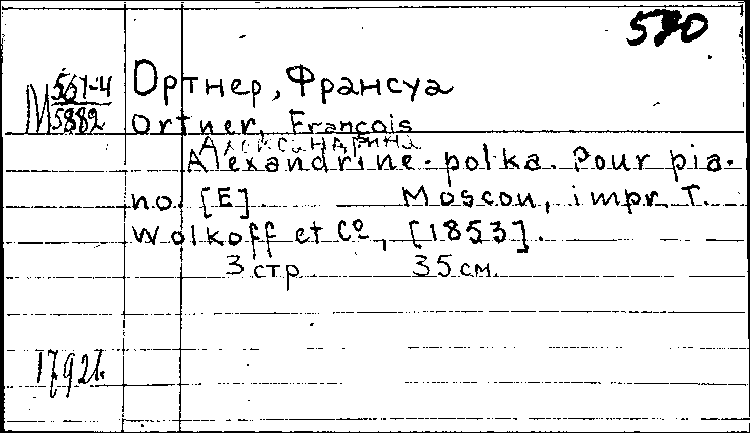 570
М 561-4
5882
Ортнер, Франсуа
Ortner, François
Александрина
Alexandrine-polka. Pour pia-
no. [E] Moscou, impr. T.
Wolkoff et Cº, [1853].
3 стр. 35 см.